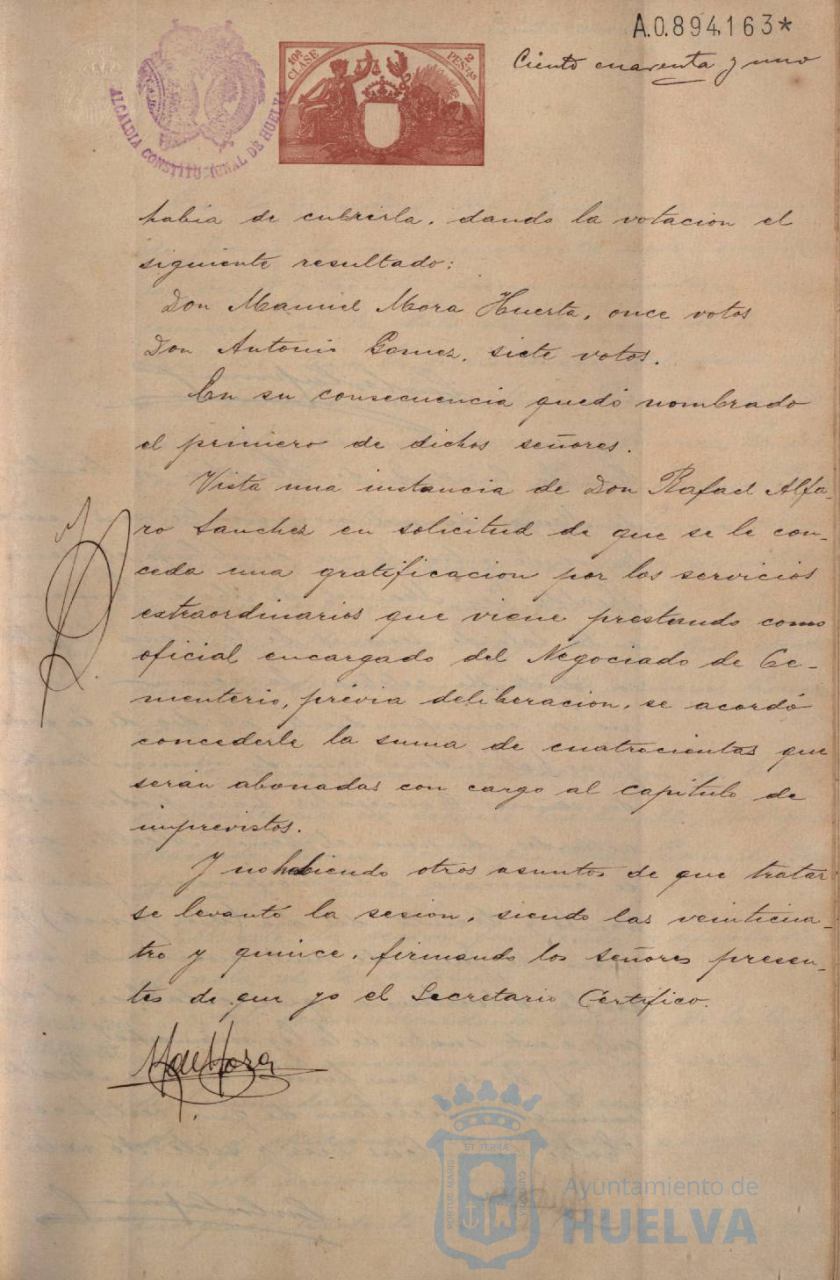 A.0.894,163*
Ciento cuarenta y uno
ALCALDIA CONSTITUCIONAL DE HUELVA
10ª CLASE
2 PESETAS
habia de cubrirla, dando la votacion el
siguiente resultado:
Don Manuel Mora Huerta, once votos
Don Antonio Gomez, siete votos.
En su consecuencia quedó nombrado
el primero de dichos señores.
Vista una instancia de Don Rafael Alfa-
ro Sanchez en solicitud de que se le con-
ceda una gratificacion por los servicios
extraordinarios que viene prestando como
oficial encargado del Negociado de Ce-
menterio, prévia deliberacion, se acordó
concederle la suma de cuatrocientas que
serán abonadas con cargo al capitulo de
imprevistos.
Y no habiendo otros asuntos de que tratar
se levantó la sesion, siendo las veinticua-
tro y quince, firmando los señores presen-
tes de que yo el Secretario Certifico.
Ayuntamiento de
HUELVA